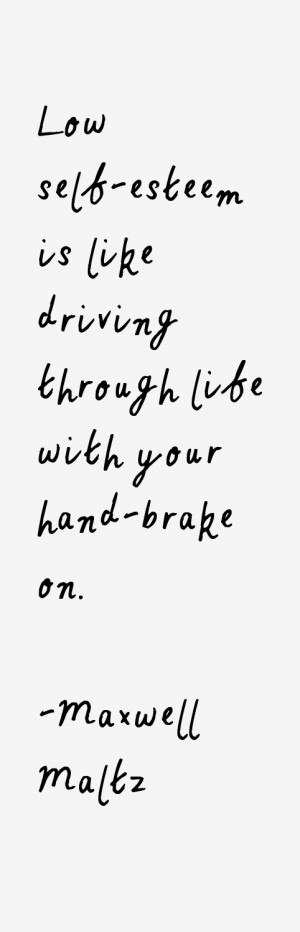 Low
self-esteem
is like
driving
through life
with your
hand-brake
on.
-Maxwell
Maltz